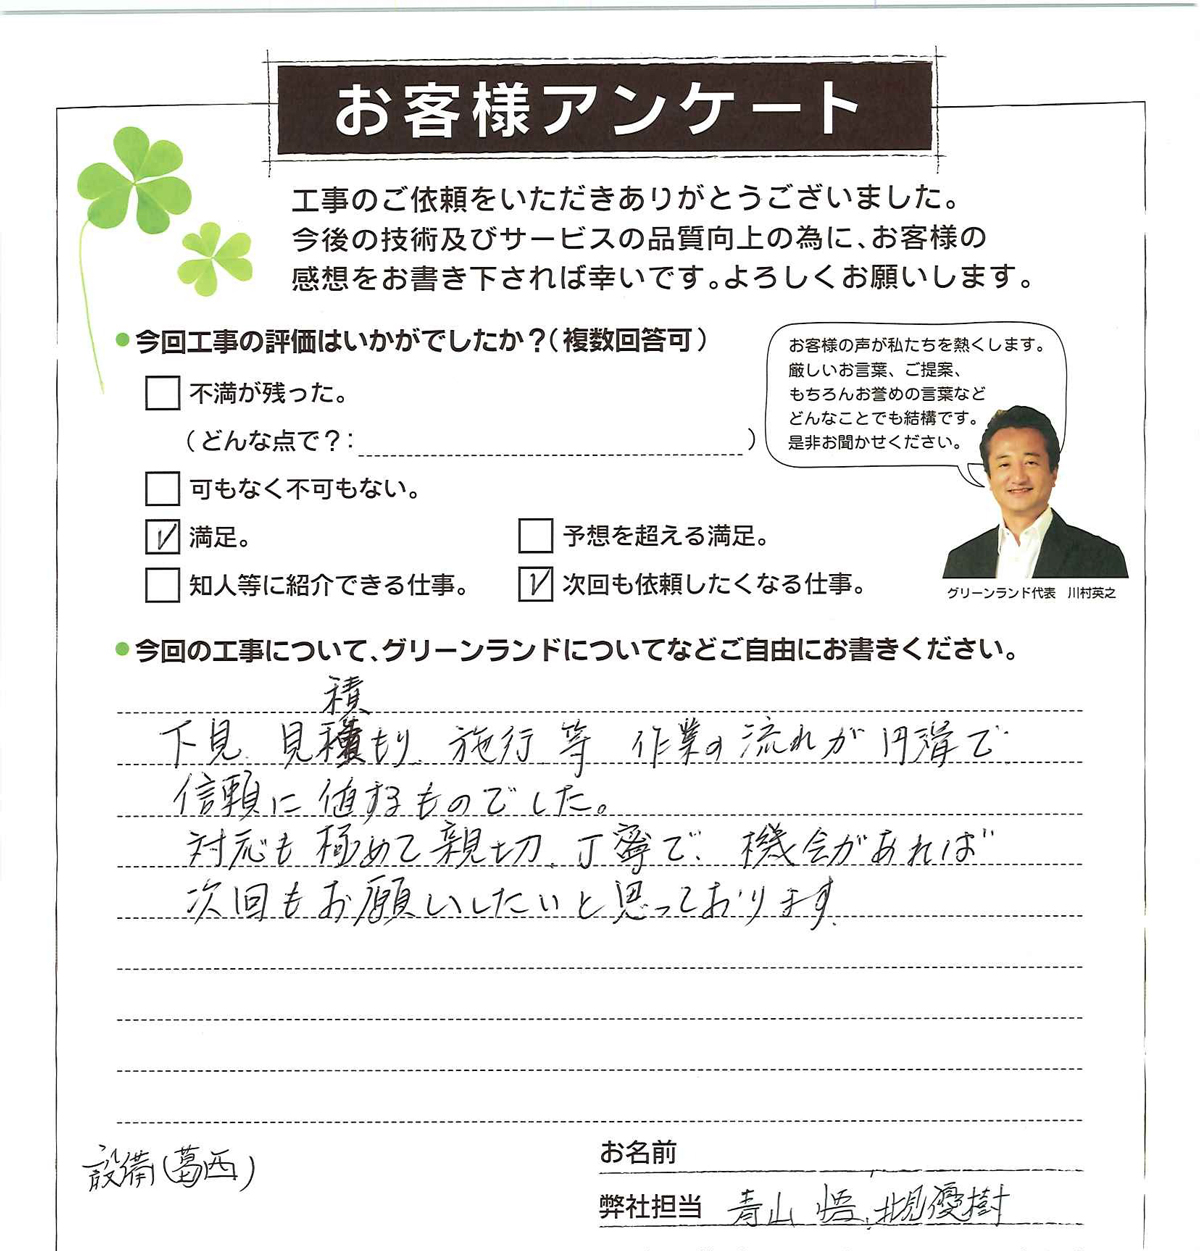 お客様アンケート
工事のご依頼をいただきありがとうございました。
今後の技術及びサービスの品質向上の為に、お客様の
感想をお書き下されば幸いです。よろしくお願いします。
今回工事の評価はいかがでしたか？（複数回答可）
不満が残った。
（どんな点で？：　　　）
可もなく不可もない。
満足。
予想を超える満足。
知人等に紹介できる仕事。
次回も依頼したくなる仕事。
お客様の声が私たちを熱くします。
厳しいお言葉、ご提案、
もちろんお誉めの言葉など
どんなことでも結構です。
是非お聞かせください。
グリーンランド代表　川村英之
今回の工事について、グリーンランドについてなどご自由にお書きください。
積
下見、見積もり、施行 等 作業の流れが円滑で
信頼に値するものでした。
対応も極めて親切、丁寧で、機会があれば
次回もお願いしたいと思っております。
設備（葛西）
お名前
弊社担当 青山 悟、北見優樹